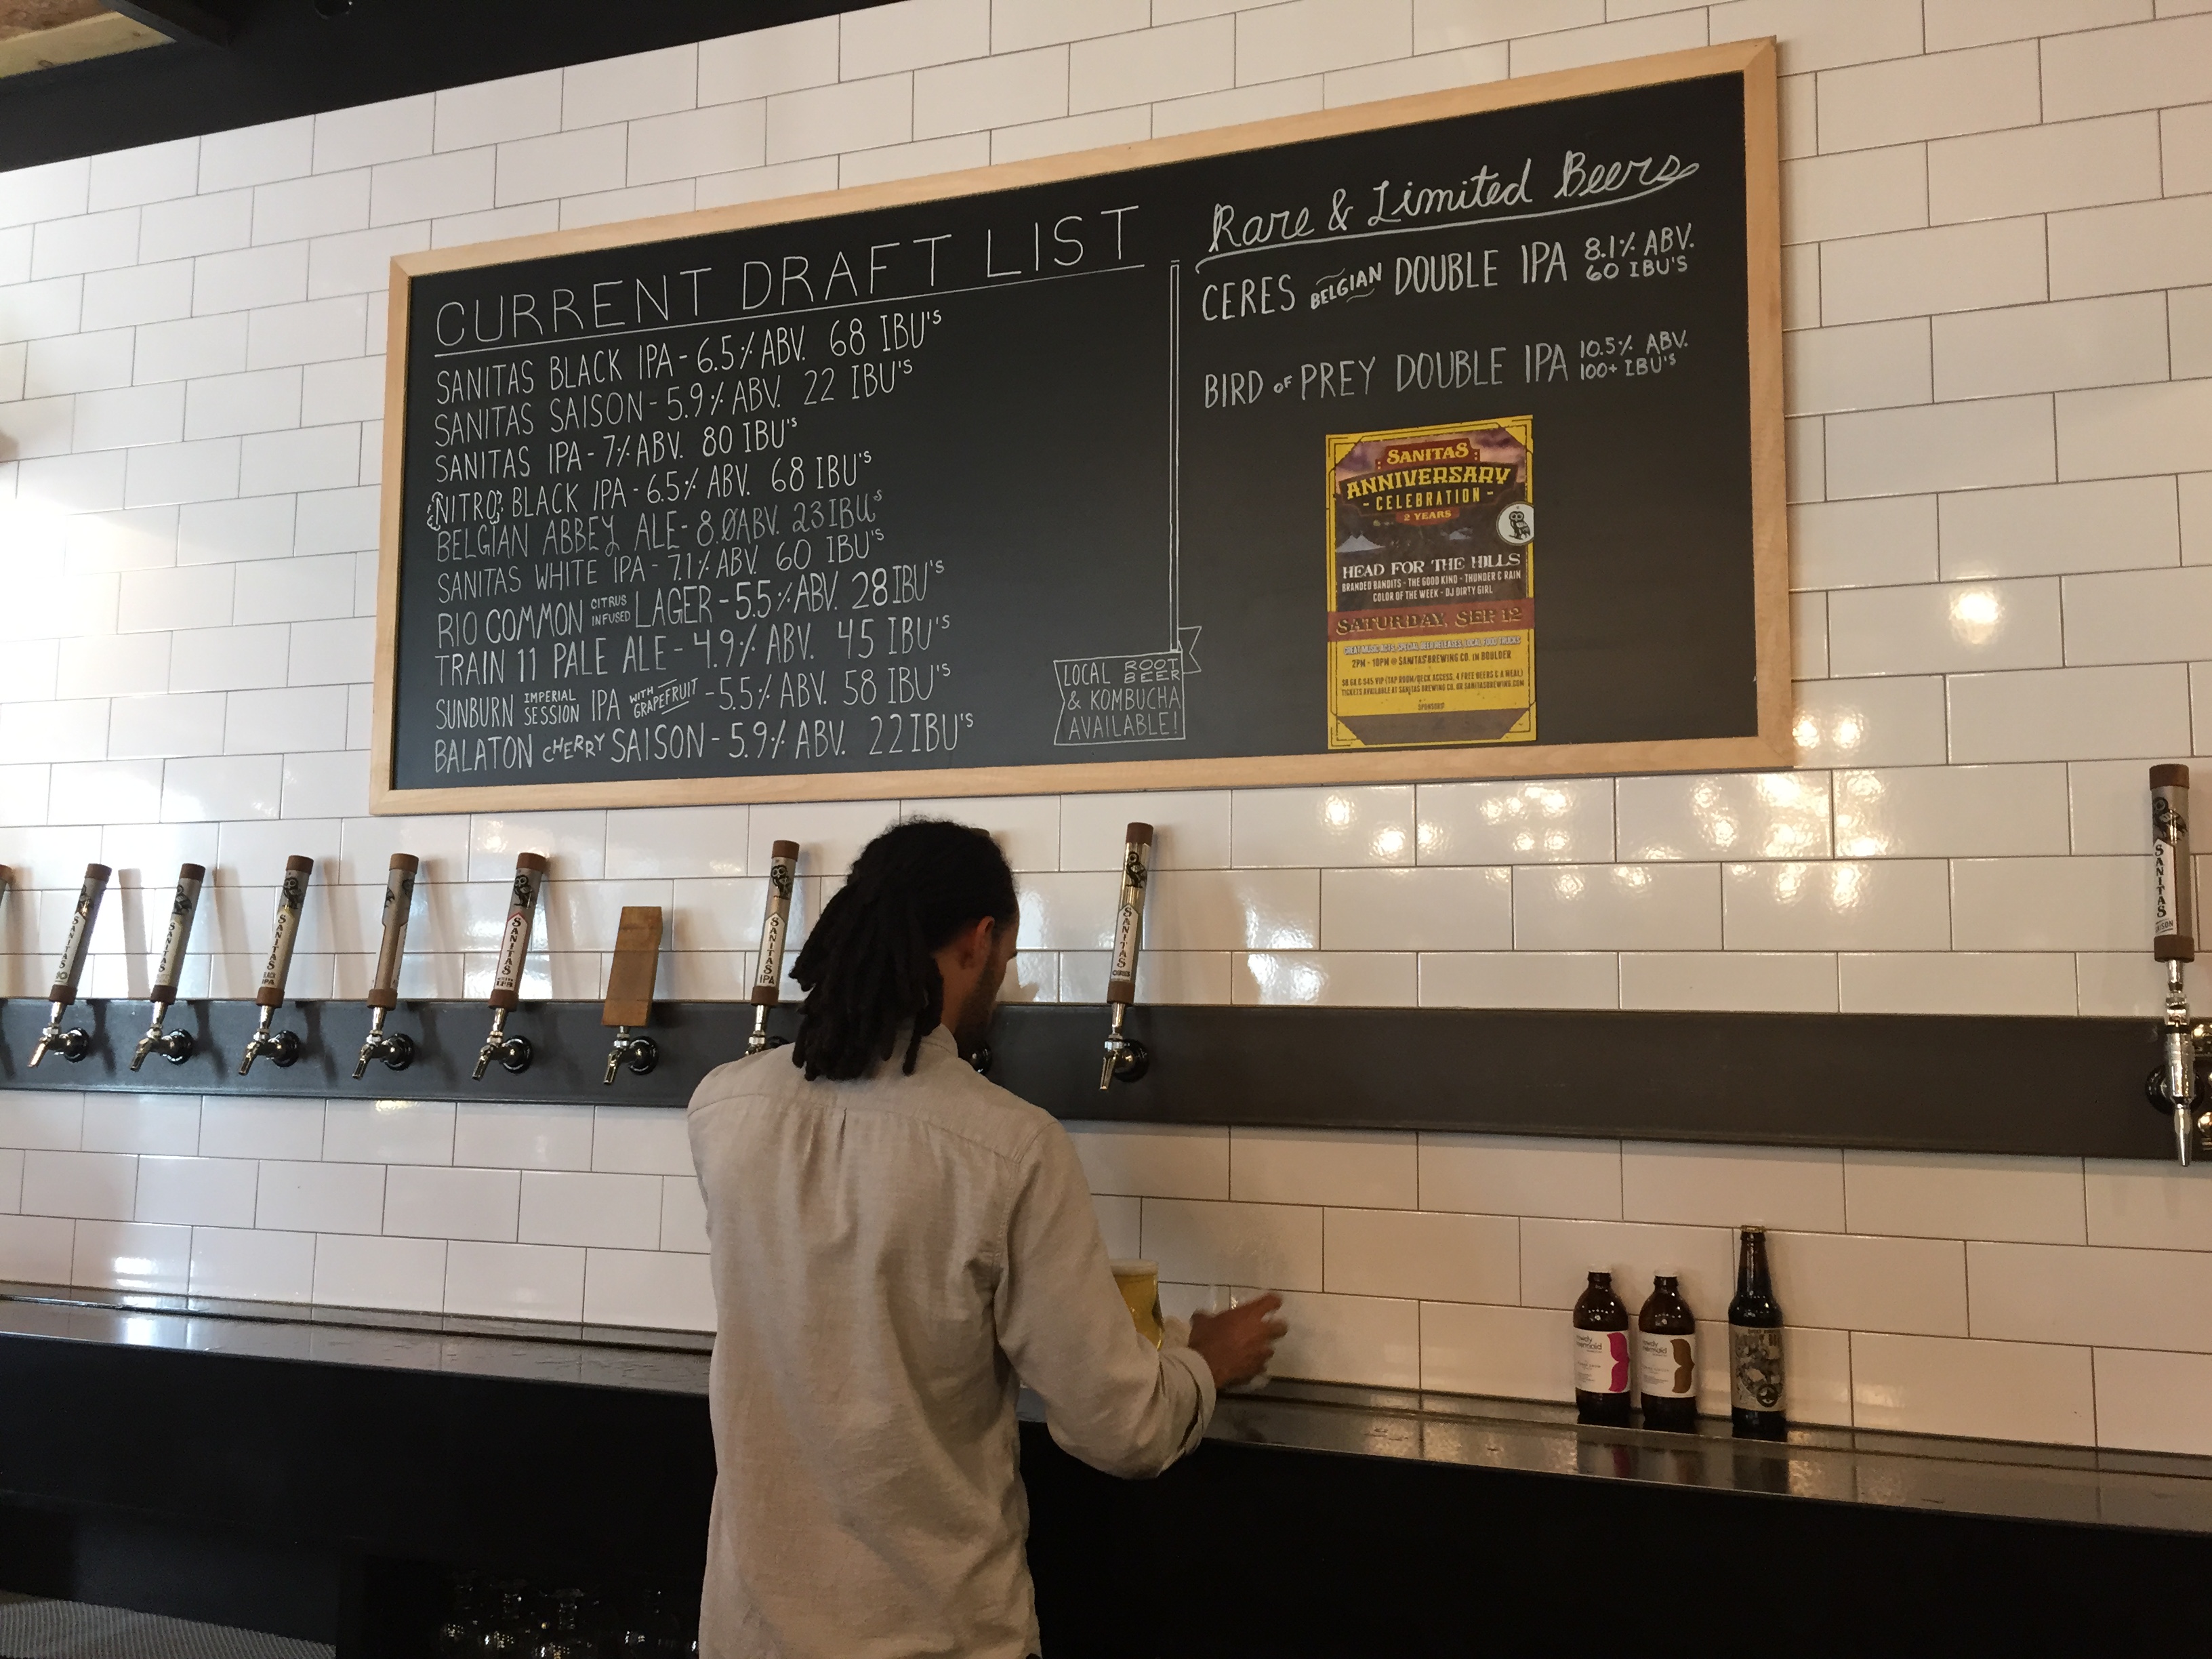 CURRENT DRAFT LIST
SANITAS BLACK IPA - 6.5% ABV. 68 IBU's
SANITAS SAISON - 5.9% ABV. 22 IBU's
SANITAS IPA - 7% ABV. 80 IBU's
NITRO BLACK IPA - 6.5% ABV. 68 IBU's
BELGIAN ABBEY ALE - 8.0 ABV. 23 IBU's
SANITAS WHITE IPA - 7.1% ABV. 60 IBU's
RIO COMMON CITRUS INFUSED LAGER - 5.5% ABV. 28 IBU's
TRAIN 11 PALE ALE - 4.9% ABV. 45 IBU's
SUNBURN IMPERIAL SESSION IPA WITH GRAPEFRUIT - 5.5% ABV. 58 IBU's
BALATON CHERRY SAISON - 5.9% ABV. 22 IBU's
LOCAL ROOT BEER
& KOMBUCHA
AVAILABLE!
Rare & Limited Beers
CERES BELGIAN DOUBLE IPA 8.1% ABV. 60 IBU'S
BIRD OF PREY DOUBLE IPA 10.5% ABV. 100+ IBU'S
SANITAS
ANNIVERSARY
- CELEBRATION -
2 YEARS
HEAD FOR THE HILLS
BRANDED BANDITS - THE GOOD KIND - THUNDER & RAIN
COLOR OF THE WEEK - DJ DIRTY GIRL
SATURDAY, SEP 12
GREAT MUSIC ACTS, SPECIAL BEER RELEASES, LOCAL FOOD TRUCKS
2PM - 10PM @ SANITAS BREWING CO. IN BOULDER
$45 VIP (TAP ROOM/DECK ACCESS, 4 FREE BEERS & A MEAL)
TICKETS AVAILABLE AT SANITAS BREWING CO. OR SANITASBREWING.COM
SANITAS
SANITAS
SANITAS
BLACK
IPA
SANITAS
SANITAS
IPA
SANITAS
SANITAS
SAISON